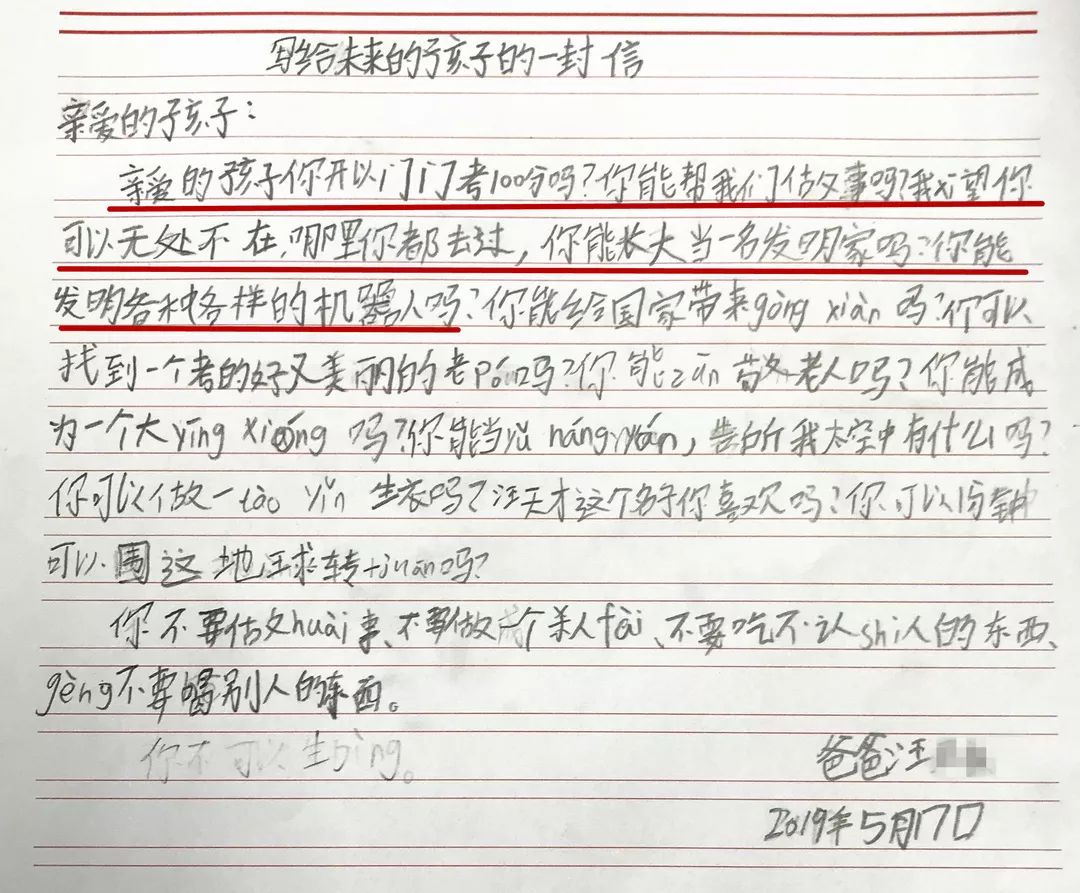 写给未来的孩子的一封信
亲爱的孩子：
亲爱的孩子你可以门门考100分吗？你能帮我们做事吗？我希望你
可以无处不在，哪里你都去过，你能长大当一名发明家吗？你能
发明各种各样的机器人吗？你能给国家带来gòng xiàn吗？你可以
找到一个考的好又美丽的老pó吗？你能zūn敬老人吗？你能成
为一个大yīng xióng吗？你能当yǔ háng yuán，告诉我太空中有什么吗？
你可以做一tào yǐn生衣吗？汪天才这个名子你喜欢吗？你可以1分钟
可以围这地球转十juān吗？
你不要做huài事、不要做一个杀人fàn、不要吃不认shi人的东西、
gèng不要喝别人的东西。
你不可以生bìng。
爸爸汪
2019年5月17日